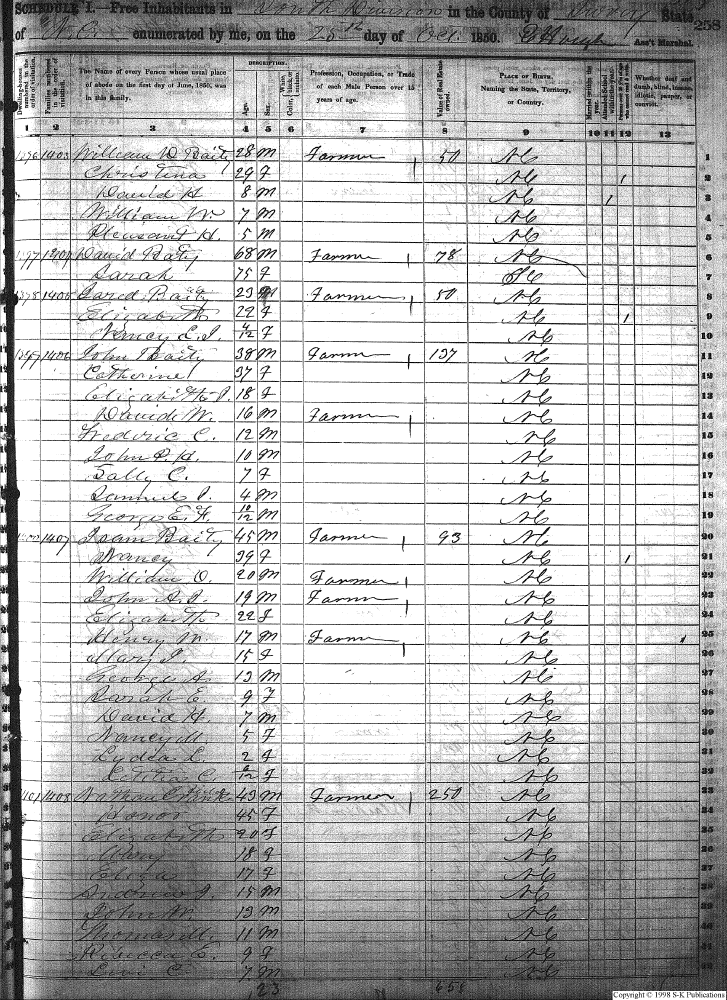 SCHEDULE I.—Free Inhabitants in South Division in the County of Surry State
of N.C. enumerated by me, on the 25th day of Oct. 1850. Ass't Marshal.
258
DESCRIPTION.
Dwelling-houses numbered in the order of visitation.
Families numbered in the order of visitation.
The Name of every Person whose usual place of abode on the first day of June, 1850, was in this family.
Age.
Sex.
Color, White, black, or mulatto.
Profession, Occupation, or Trade of each Male Person over 15 years of age.
Value of Real Estate owned.
PLACE OF BIRTH. Naming the State, Territory, or Country.
Married within the year.
Attended School within the year.
Whether deaf and dumb, blind, insane, idiotic, pauper, or convict.
1 2 3 4 5 6 7 8 9 10 11 12 13
1396 1403 William D Baity 28 M Farmer 1 50 NC 1
Christina 29 F NC 1 2
David H 8 M NC 1 3
William W. 7 M NC 4
Pleasant H. 5 M NC 5
1397 1404 David Baity 68 M Farmer 1 78 NC 6
Sarah 75 F 7
1398 1405 Jared Baity 23 M Farmer 1 50 NC 8
Elizabeth 22 F NC 1 9
Nancy L. J. /12 F NC 10
1399 1406 John Baity 38 M Farmer 1 137 NC 11
Catherine 37 F NC 12
Elizabeth J. 18 F NC 13
David W. 16 M Farmer 1 NC 14
Frederic C. 12 M NC 15
John H. 10 M NC 16
Sally C. 7 F NC 17
Samuel J. 4 M NC 18
George E. F. 10/12 M NC 19
1400 1407 Isam Baity 45 M Farmer 1 93 NC 20
Nancy 39 F NC 1 21
William O. 20 M Farmer 1 NC 22
John A. J. 19 M Farmer 1 NC 23
Elizabeth 22 F NC 24
Henry W 17 M Farmer 1 NC 25
Mary J. 15 F NC 26
George A. 13 M NC 27
Sarah E 9 F NC 28
David H. 7 M NC 29
Nancy M 5 F NC 30
Lydia L. 2 F NC 31
Letitia C. /12 F NC 32
1401 1408 Nathan 43 M Farmer 1 250 NC 33
Honor 45 F NC
Elizabeth 20 F NC
Mary 18 F NC
Eliza 17 F NC
Andrew J. 15 M NC
John W. 13 M NC
Thomas 11 M NC
Rebecca E. 9 F NC
Levi C. 7 M NC
23 658
Copyright © 1998 S-K Publications